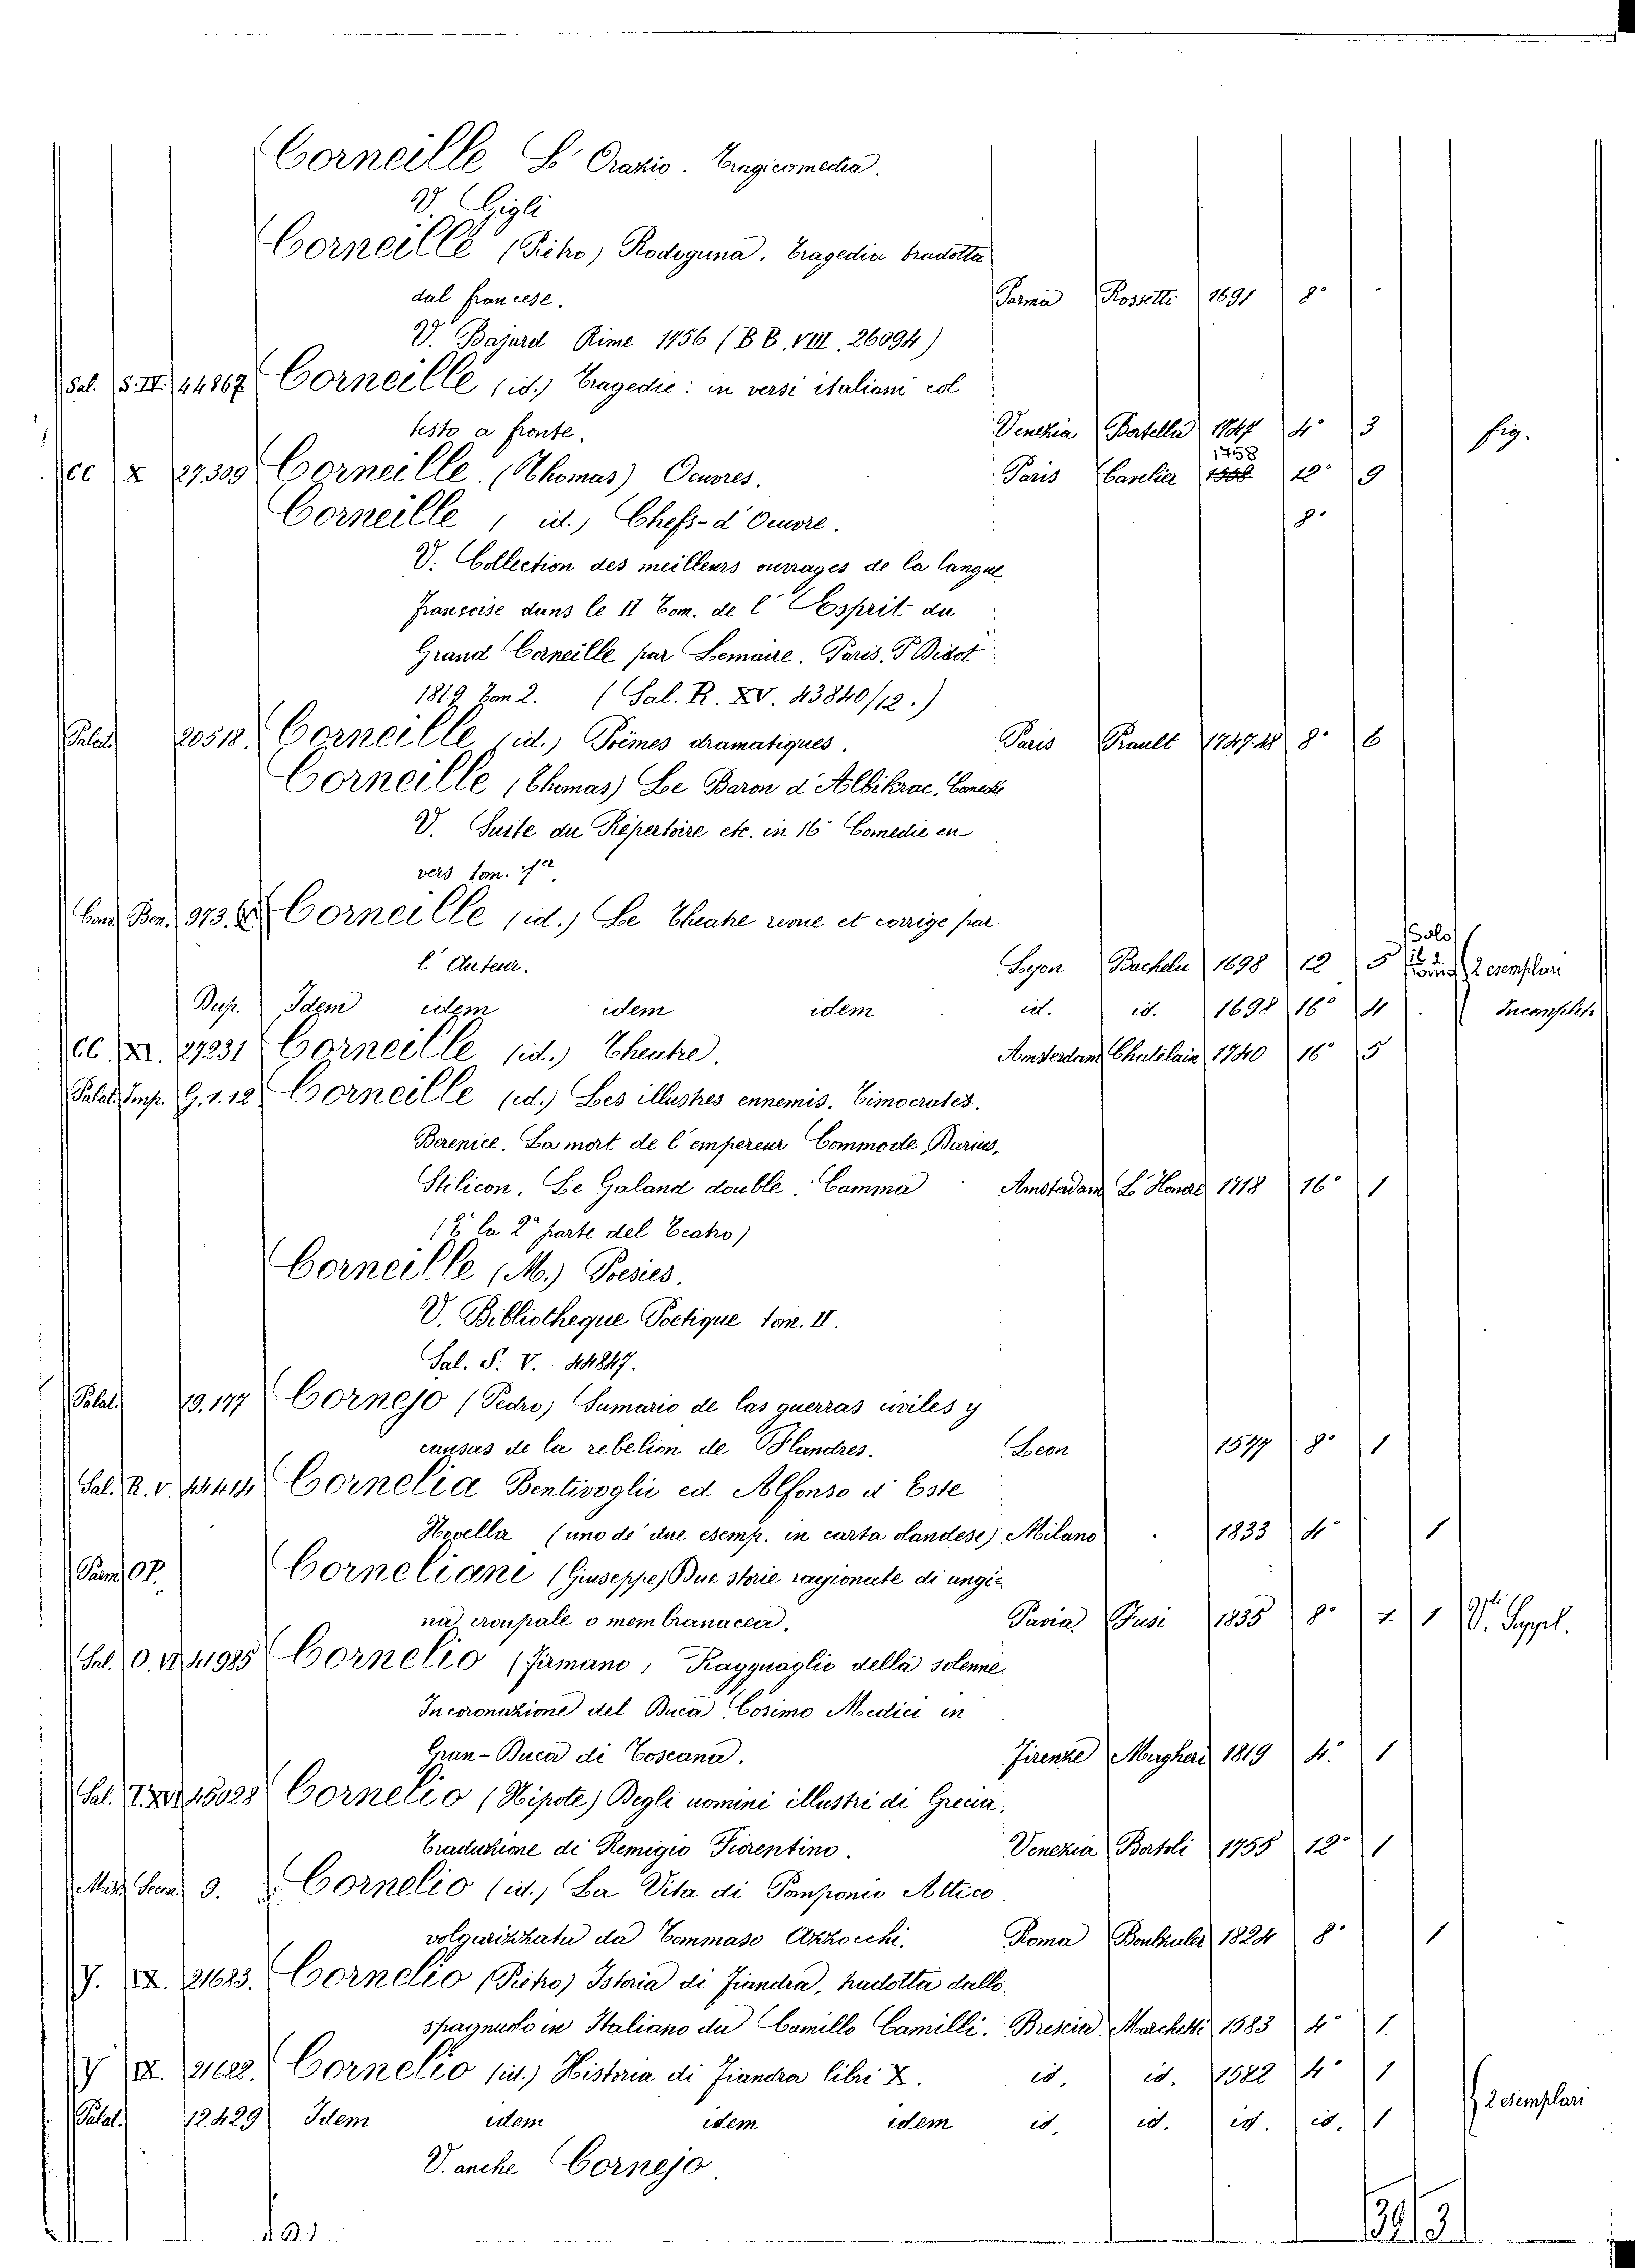 Corneille L'Orazio. Tragicomedia.
V. Gigli
Corneille (Pietro) Rodoguna, Tragedia tradotta
dal francese. Parma Rossetti 1691 8°
V. Bajard Rime 1756 (BB. VIII. 26094)
Sal. S. IV. 44867 Corneille (id.) Tragedie: in versi italiani col
testo a fronte. Venezia Bortella 1747 4° 3 fig.
CC X 27.309 Corneille (Thomas) Oeuvres. Paris Cavelier 1758 12° 9
Corneille (id.) Chefs-d'Oeuvre. 8°
V. Collection des meilleurs ouvrages de la langue
francaise dans le II Tom. de l'Esprit du
Grand Corneille par Lemaire. Paris. P Didot
1819 Tom 2. (Sal. R. XV. 43840/12.)
Palat. 20518. Corneille (id.) Poëmes dramatiques. Paris Prault 1747.48 8° 6
Corneille (Thomas) Le Baron d'Albikrac,
V. Suite du Répertoire etc. in 16° Comedie en
vers tom. 1er
973. Corneille (id.) Le Theatre revue et corrige par
l'Auteur. Lyon 1698 12 5 Solo 2 esemplari
Dup. Idem idem idem idem id. id. 1698 16° 4 Incomplet.
CC. XI. 27231 Corneille (id.) Theatre. Amsterdam Chatelain 1740 16° 5
Palat. Imp. G. 1. 12 Corneille (id.) Les illustres ennemis. Timocrates.
Berenice. La mort de l'empereur Commode, Darius,
Stilicon. Le Galand double. Camma Amsterdam L'Honoré 1718 16° 1
(È la 2a parte del Teatro)
Corneille (M.) Poesies.
V. Bibliotheque Poetique tom. II.
Sal. S. V. 44847.
Palat. 19.177 Cornejo (Pedro) Sumario de las guerras civiles y
causas de la rebelion de Flandres. Leon 1577 8° 1
Sal. R. V. Cornelia Bentivoglio ed Alfonso d'Este
Novella (uno de' due esemp. in carta olandese) Milano 1833 4° 1
OP. Corneliani (Giuseppe) Due storie ragionate di angi=
na croupale o membranacea. Pavia Fusi 1835 8° 1 V. Suppl.
Sal. O. 41985 Cornelio (Firmano, Ragguaglio della solenne
Incoronazione del Duca Cosimo Medici in
Gran-Duca di Toscana. Firenze Magheri 1819 4° 1
Sal. 45028 Cornelio (Nipote) Degli uomini illustri di Grecia.
Traduzione di Remigio Fiorentino. Venezia Bortoli 1755 12° 1
9. Cornelio (id.) La Vita di Pomponio Attico
volgarizzata da Tommaso Azzocchi. Roma Bonthaler 1824 8° 1
Y. IX. 21683. Cornelio (Pietro) Istoria di Fiandra, tradotta dallo
spagnuolo in Italiano da Camillo Camilli. Brescia Marchetti 1583 4° 1.
Y IX. 21682. Cornelio (id.) Historia di Fiandra libri X. id. id. 1582 4° 1
Palat. 12.429 Idem idem idem idem id. id. id. id. 1 2 esemplari
V. anche Cornejo